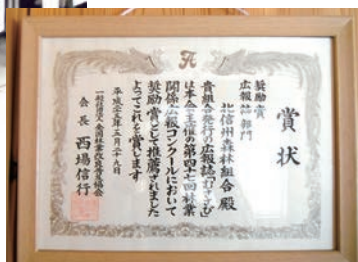 賞状
奨励賞
広報誌部門
北信州森林組合 殿
貴組合発行の広報誌「むささび」
は本会主催の第四十七回林業
関係広報コンクールにおいて
奨励賞として推薦されました
よってこれを賞します
平成二十五年五月二十九日
一般社団法人 全国林業改良普及協会
会長 西場信行